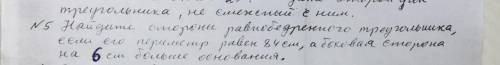 треугольника, не смежный с ним.
№5 Найдите стороны равнобедренного треугольника,
если его периметр равен 84см, а боковая сторона
на 6 см больше основания.